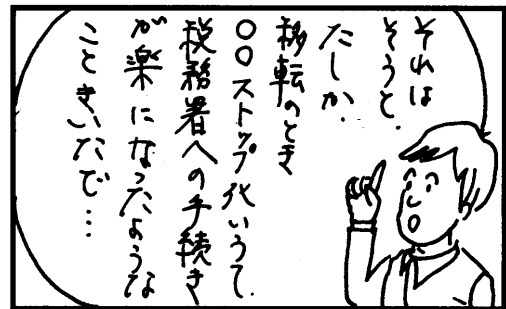 それは
そうと.
たしか.
移転のとき
○○ストップ化いうて.
税務署への手続き
が楽になったような
こときいたで…